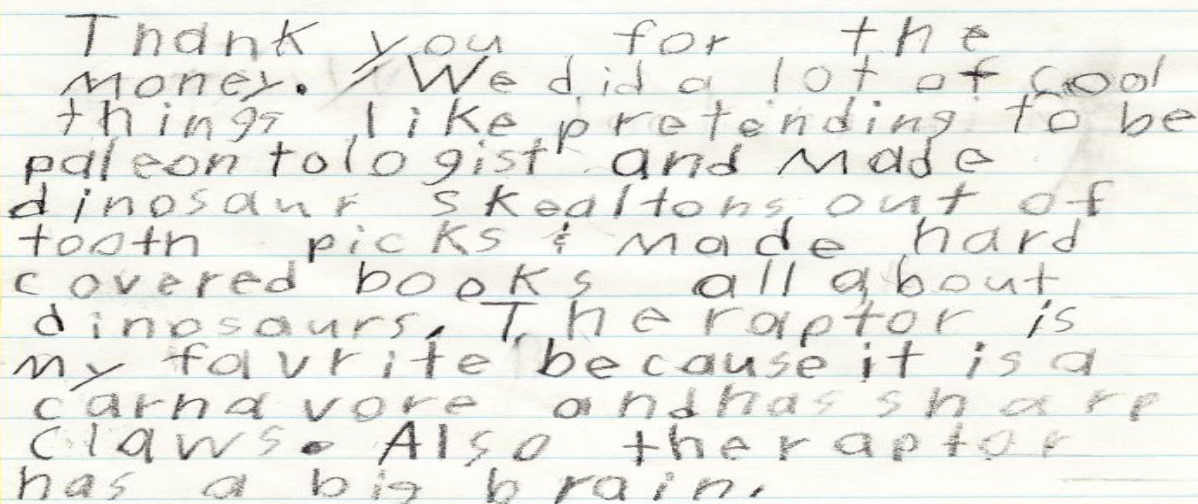 Thank you for the
money. We did a lot of cool
things like pretending to be
paleontologist and made
dinosaur skealtons out of
tooth picks & made hard
covered books all about
dinosaurs. The raptor is
my favrite because it is a
carnavore and has sharp
claws. Also the raptor
has a big brain.